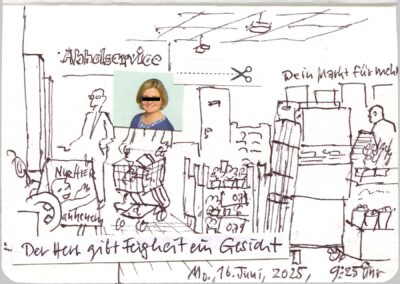 Abholservice
Dein Markt für mehr
Nur HIER
079
079
Der Herr gibt Feigheit ein Gesicht
Mo., 16. Juni, 2025, 9:25 Uhr